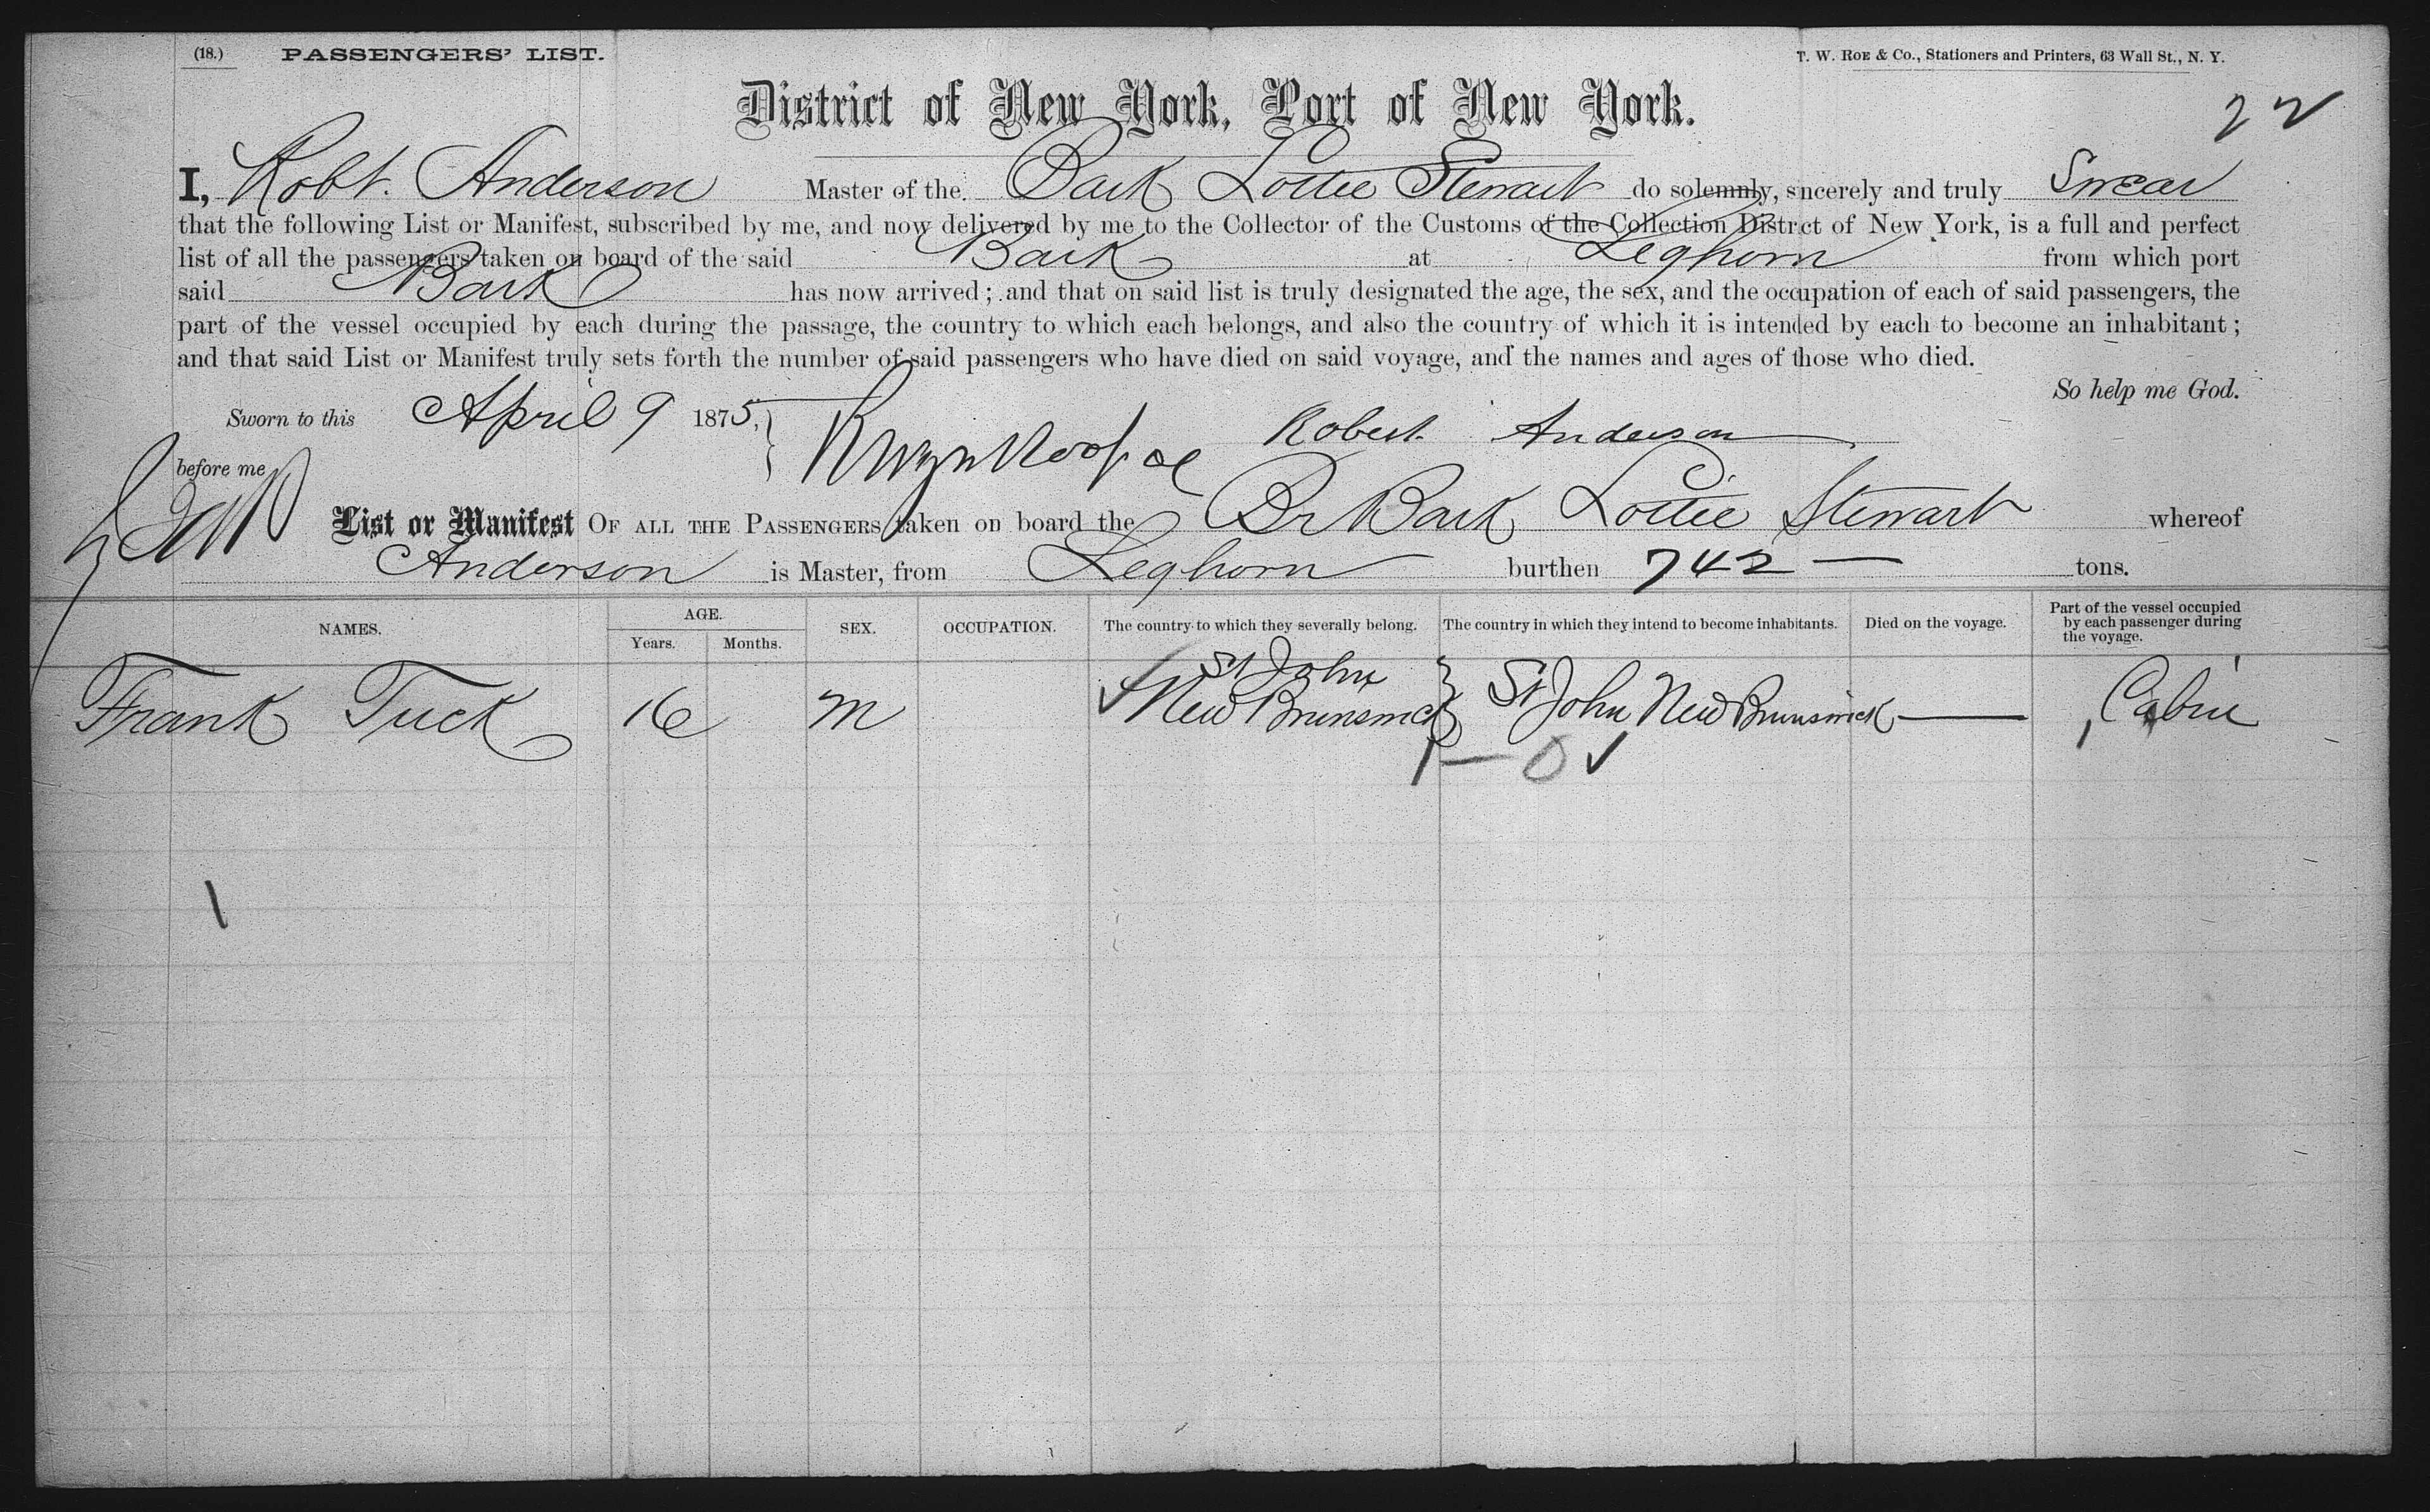 (18.) PASSENGERS' LIST.
T. W. ROE & Co., Stationers and Printers, 63 Wall St., N. Y.
District of New York, Port of New York.
22
I, Robt. Anderson Master of the Bark Lottie Stewart do solemnly, sincerely and truly Swear
that the following List or Manifest, subscribed by me, and now delivered by me to the Collector of the Customs of the Collection District of New York, is a full and perfect
list of all the passengers taken on board of the said Bark at Leghorn from which port
said Bark has now arrived; and that on said list is truly designated the age, the sex, and the occupation of each of said passengers, the
part of the vessel occupied by each during the passage, the country to which each belongs, and also the country of which it is intended by each to become an inhabitant;
and that said List or Manifest truly sets forth the number of said passengers who have died on said voyage, and the names and ages of those who died.
So help me God.
Sworn to this April 9 1875,
Robert Anderson
before me
List or Manifest OF ALL THE PASSENGERS taken on board the Br Bark Lottie Stewart whereof
Anderson is Master, from Leghorn burthen 742 — tons.
NAMES. AGE. Years. Months. SEX. OCCUPATION. The country to which they severally belong. The country in which they intend to become inhabitants. Died on the voyage. Part of the vessel occupied by each passenger during the voyage.
Frank Tuck 16 m St John New Brunswick } St John New Brunswick — Cabin
1 — 0 ✓
1